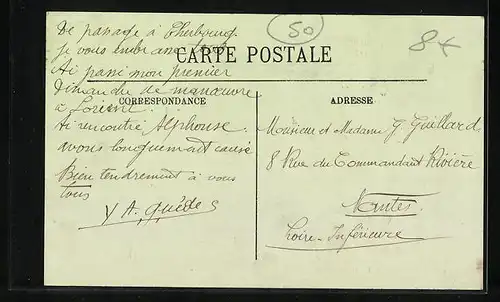 De passage à Cherbourg
je vous embrasse
Ai passé mon premier
Dimanche de manœuvre
à Lorient.
Ai rencontré Alphonse.
avons longuement causé
Bien tendrement à vous
tous
50
8
CARTE POSTALE
CORRESPONDANCE
ADRESSE
Monsieur et Madame G. Guillard
8 Rue du Commandant Rivière
Nantes.
Loire-Inférieure